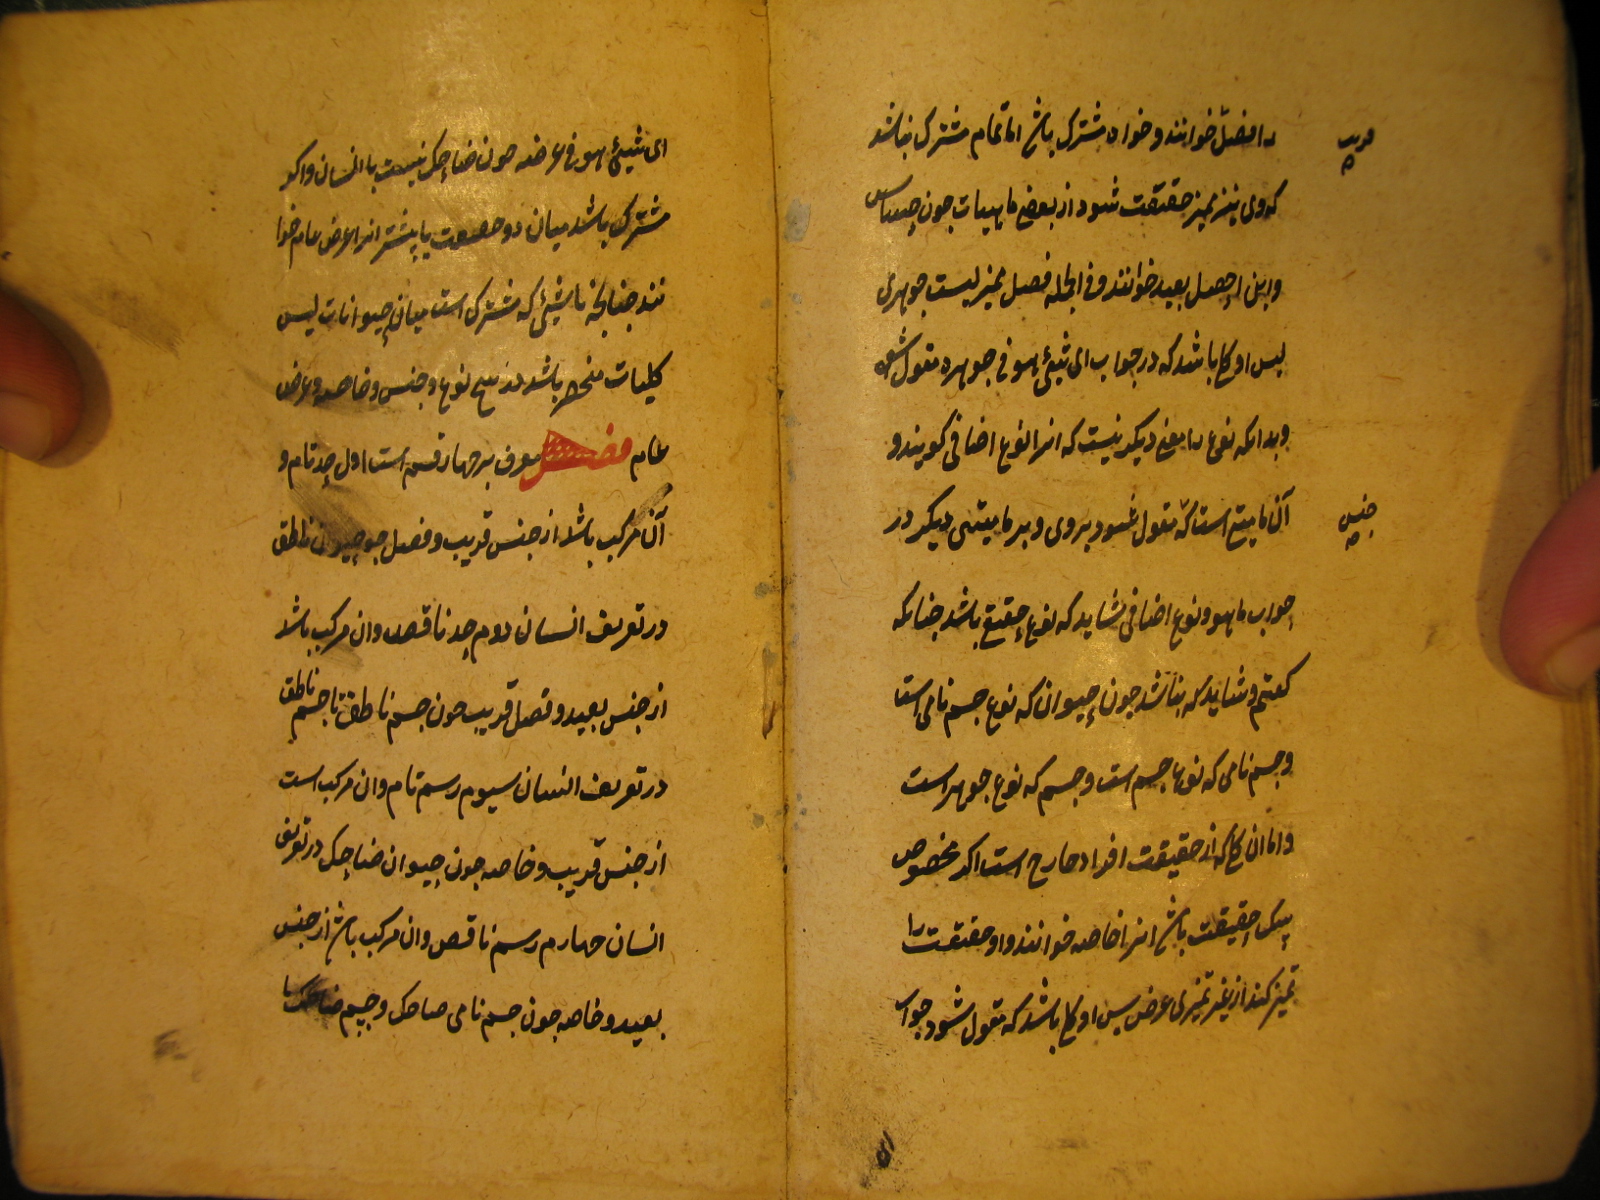 را فصل خوانند و خواه مشترک باشد اما تمام مشترک نباشد
قریب
که وی نیز ممیز حقیقت شود از بعض ماهیات چون حساس
و این را فصل بعید خوانند و فی الجمله فصل ممیز لیست جوهری
پس او کلی باشد که در جواب ای شیئ هو فی جوهره مقول شود
و بدانکه نوع را معنی دیکر نیست که انرا نوع اضافی کویند و
آن ماهیتی است که مقول شود بر وی و بر ماهیتی دیکر در
جنس
جواب ما هو و نوع اضافی شاید که نوع حقیقی باشد چنانکه
کفتم و شاید که نباشد چون حیوان که نوع جسم نامی است
و جسم نامی که نوع جسم است و جسم که نوع جوهر است
و اما ان کلی که از حقیقت افراد خارج است اکر مخصوص
بیک حقیقت باشد انرا خاصه خوانند و او حقیقت را
تمیز کند از غیر تمیزی عرض پس او کلی باشد که مقول شود جواب
ای
ای شیئ هو فی عرضه چون ضاحک نسبت با انسان و اکر
مشترک باشد میان دو حقیقت یا بیشتر انرا عرض عام خوا
نند چنانچه ماشی که مشترک است میان حیوانات پس
کلیات منحصر باشد در پنج نوع و جنس و خاصه و عرض
عام فصل معرف بر چهار قسم است اول حد تام و
آن مرکب باشد از جنس قریب و فصل چو حیوان ناطق
در تعریف انسان دوم حد ناقص و ان مرکب باشد
از جنس بعید و فصل قریب چون جسم ناطق تا جسم ناطق
در تعریف انسان سیوم رسم تام و ان مرکب است
از جنس قریب و خاصه چون حیوان ضاحک در تعریف
انسان چهارم رسم ناقص و ان مرکب باشد از جنس
بعید و خاصه چون جسم نامی ضاحک و جسم ضاحک یا